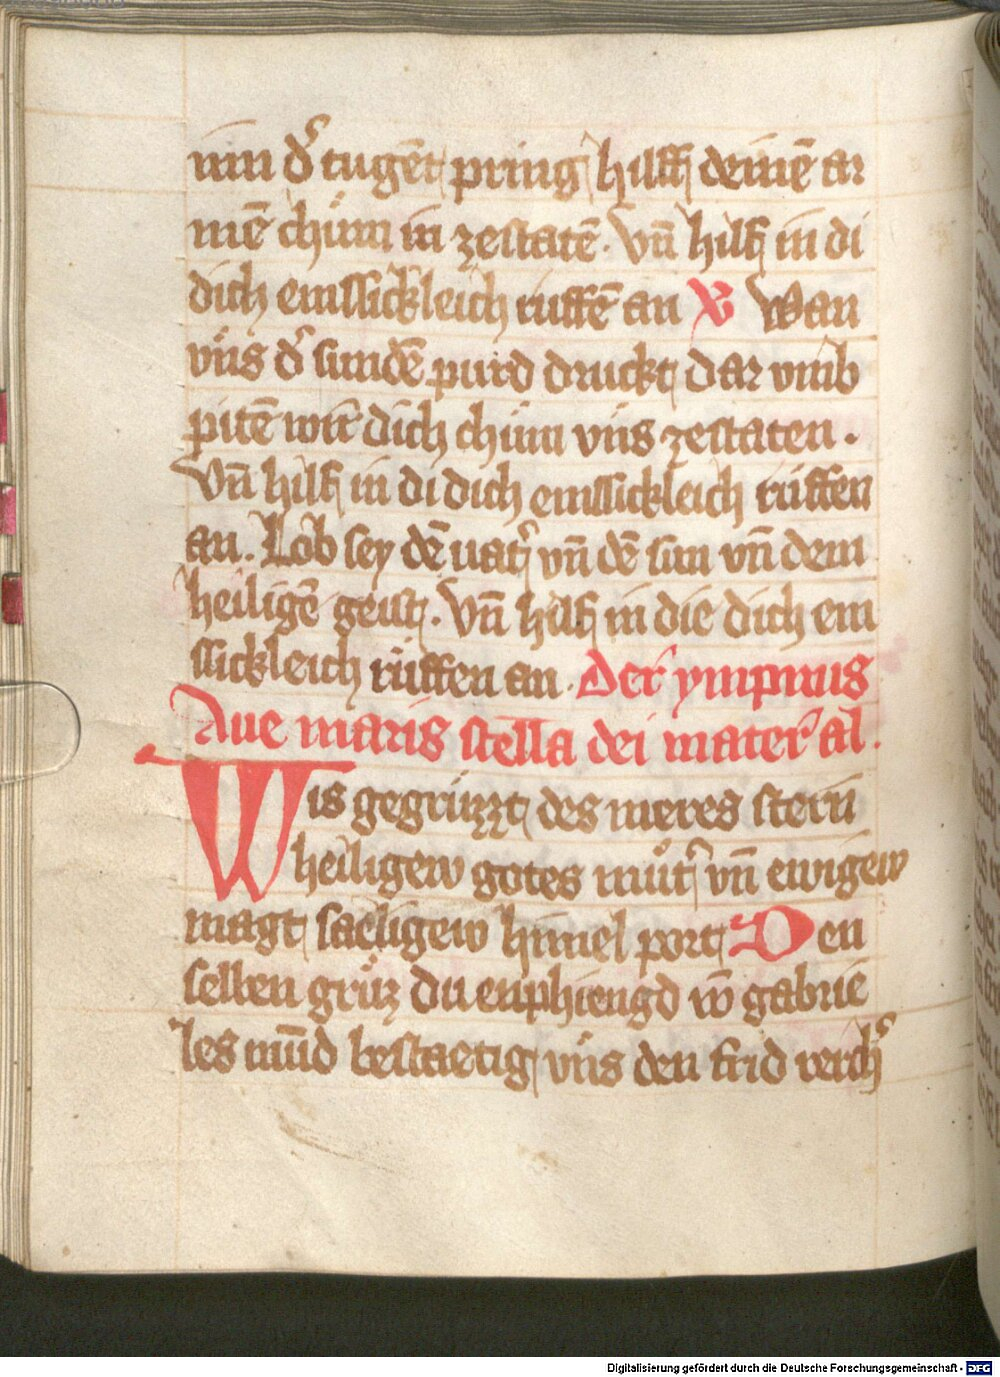 nim d̾ tugēt pring hilff deinē ar
mē chüm in zestatē. Vn̄ hilff in di
dich emssickleich ruffē an V Wan
vns d̾ sundē purd druckt dar vmb
pitē wir dich chüm vns zestaten.
Vn̄ hilff in di dich emssickleich rüffen
an. Lob sey dē vat̾ vn̄ dē sun vn̄ dem
heiligē geist. Vn̄ hilff in die dich em
ssickleich rüffen an. Der ympnus
Aue maris stella dei mater al.
Wis gegrüzzt des meres stern
heiligew gotes mut̾ vn̄ ewigew
magt saeligew himel port Den
selben gruz du enphiengd vō gabrie
les mūd bestaetig vns den frid verch̾
Digitalisierung gefördert durch die Deutsche Forschungsgemeinschaft - DFG